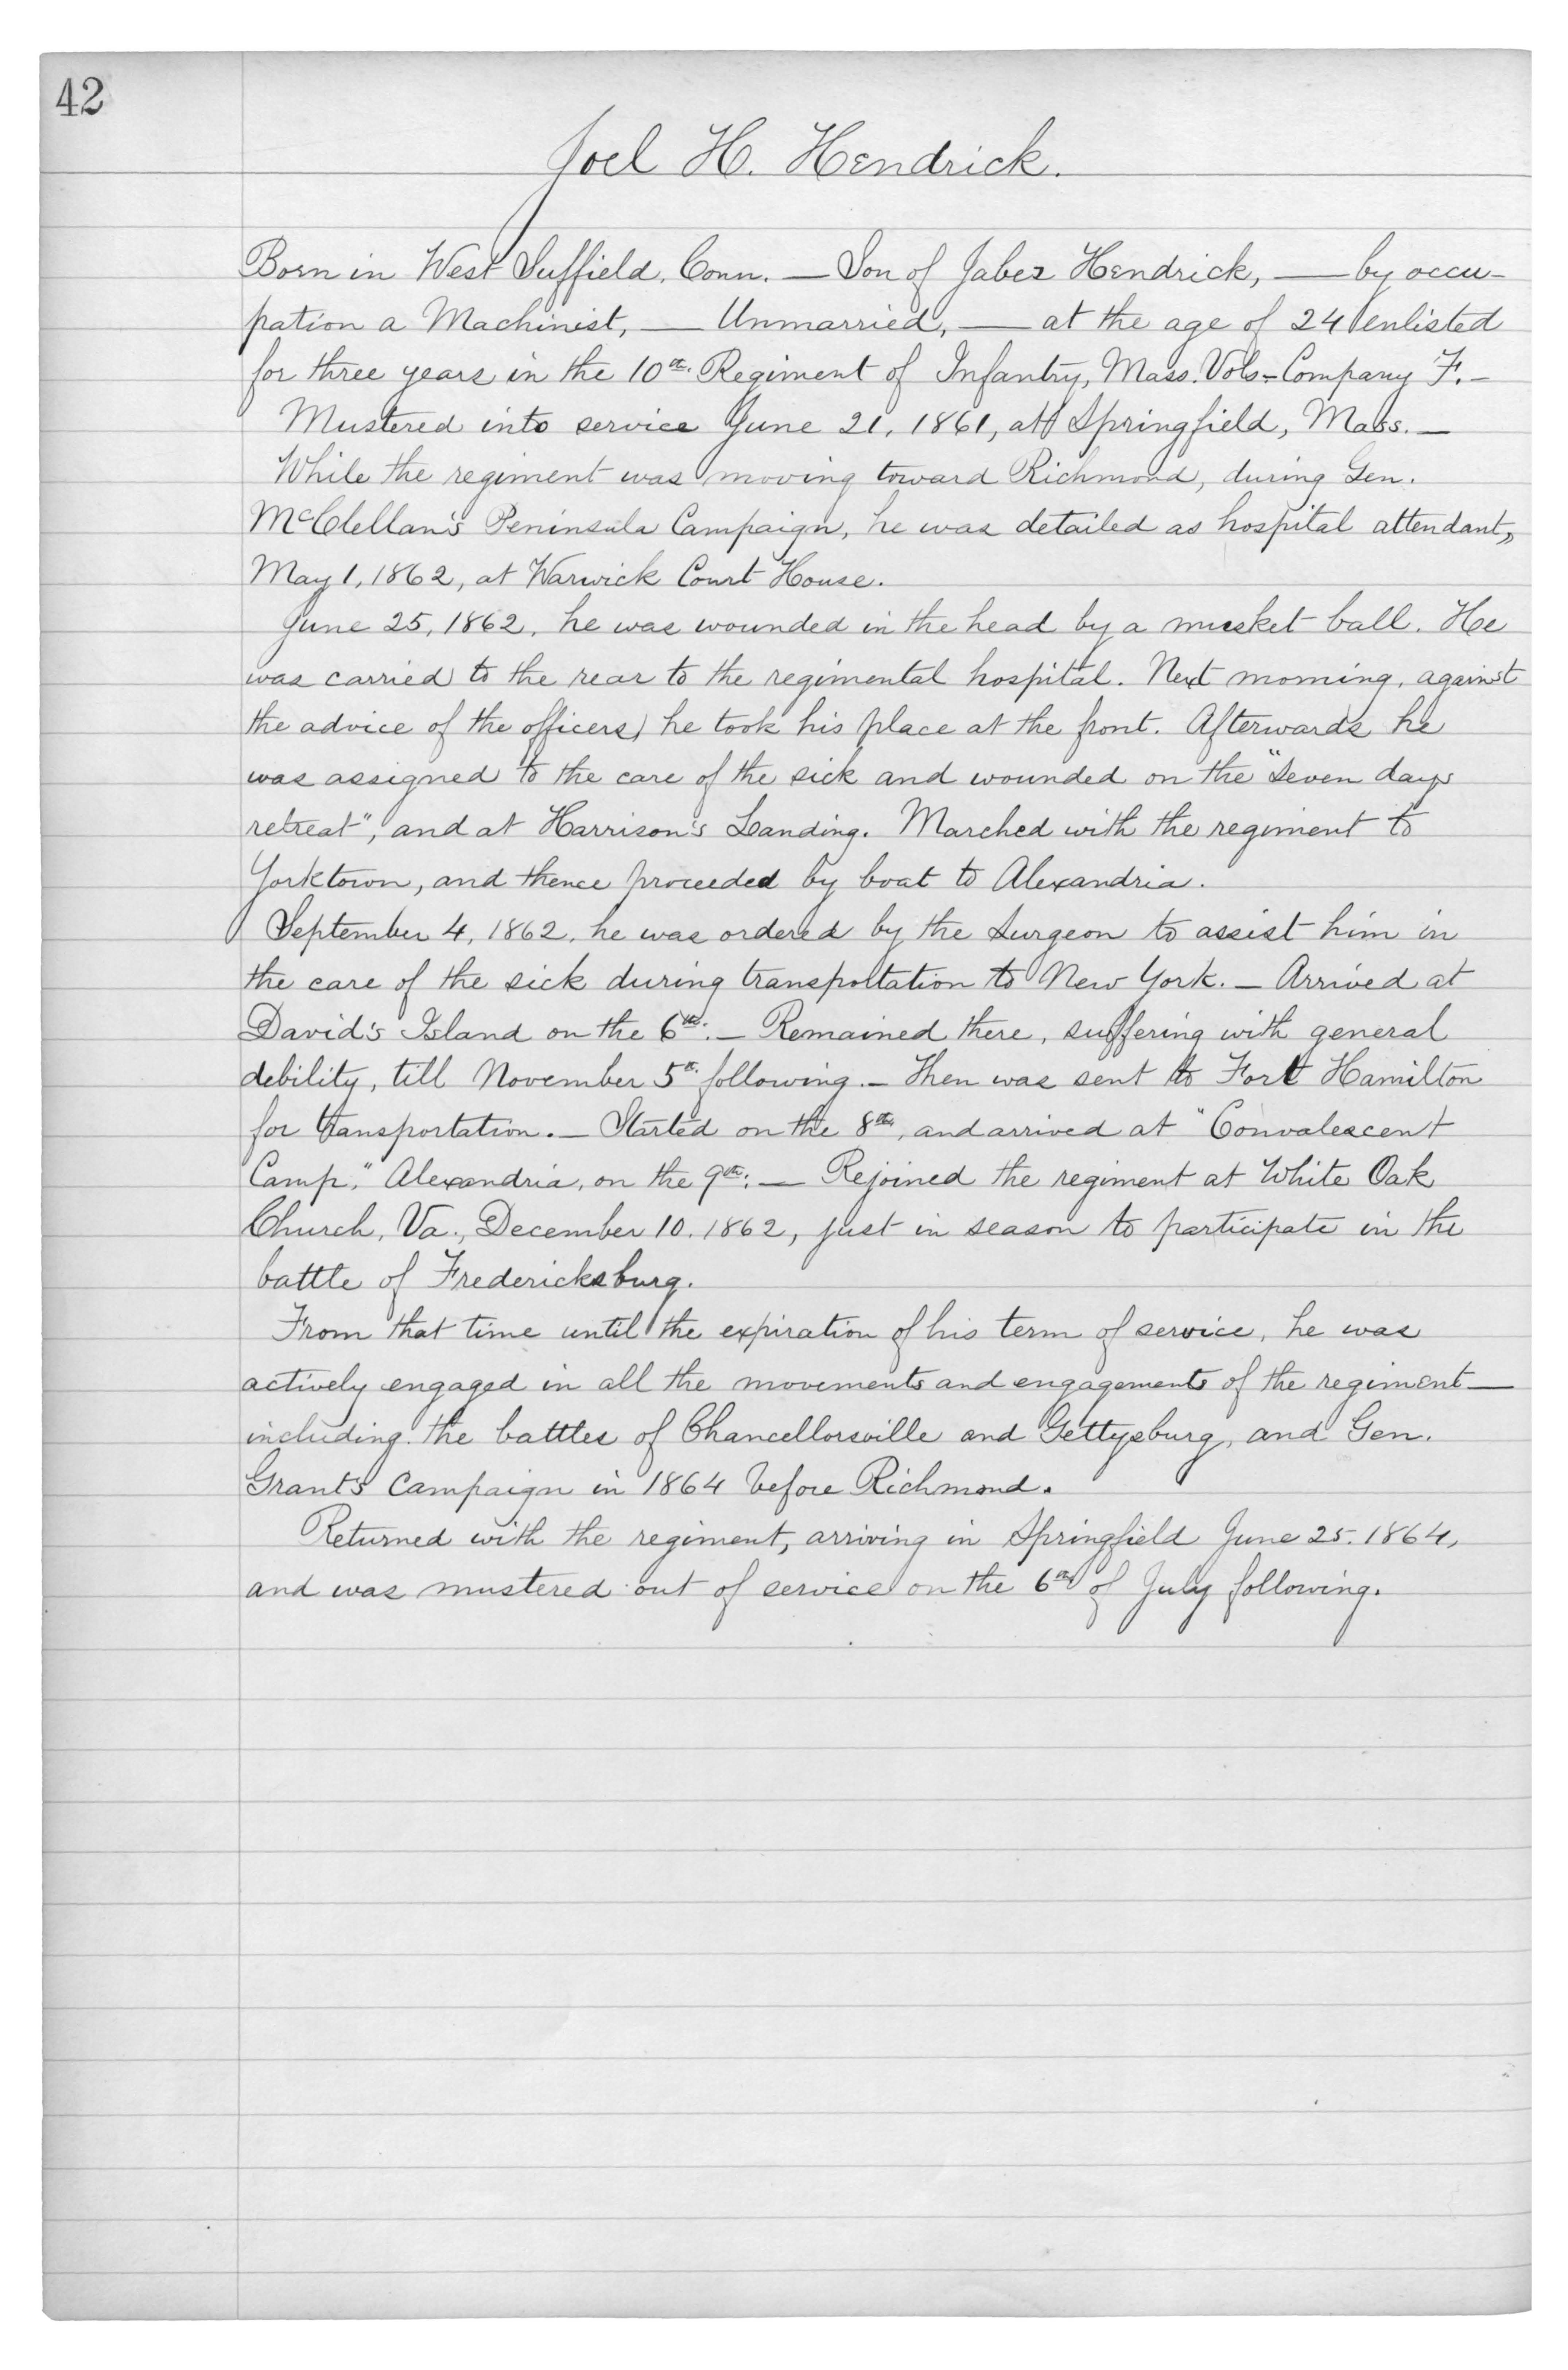 42
Joel H. Hendrick.
Born in West Suffield, Conn. — Son of Jabez Hendrick, — by occu-
pation a Machinist, — Unmarried, — at the age of 24 enlisted
for three years in the 10th Regiment of Infantry, Mass. Vols - Company F. -
Mustered into service June 21, 1861, at Springfield, Mass. —
While the regiment was moving toward Richmond, during Gen.
McClellan's Peninsula Campaign, he was detailed as hospital attendant,
May 1, 1862, at Warwick Court House.
June 25, 1862, he was wounded in the head by a musket ball. He
was carried to the rear to the regimental hospital. Next morning, against
the advice of the officers, he took his place at the front. Afterwards he
was assigned to the care of the sick and wounded on the "Seven days
retreat", and at Harrison's Landing. Marched with the regiment to
Yorktown, and thence proceeded by boat to Alexandria.
September 4, 1862, he was ordered by the Surgeon to assist him in
the care of the sick during transportation to New York. — Arrived at
David's Island on the 6th. — Remained there, suffering with general
debility, till November 5th following. — Then was sent to Fort Hamilton
for transportation. — Started on the 8th, and arrived at "Convalescent
Camp," Alexandria, on the 9th; — Rejoined the regiment at White Oak
Church, Va., December 10, 1862, just in season to participate in the
battle of Fredericksburg.
From that time until the expiration of his term of service, he was
actively engaged in all the movements and engagements of the regiment —
including the battles of Chancellorsville and Gettysburg, and Gen.
Grant's Campaign in 1864 before Richmond.
Returned with the regiment, arriving in Springfield June 25, 1864,
and was mustered out of service on the 6th of July following.